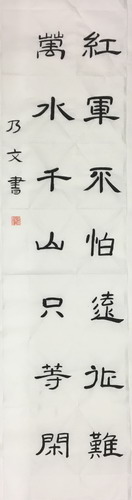 紅軍不怕遠征難
萬水千山只等閑
乃文書